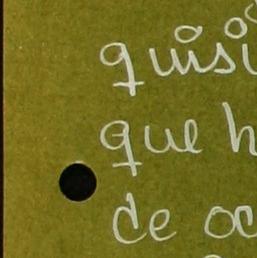 quisi
que h
de oc